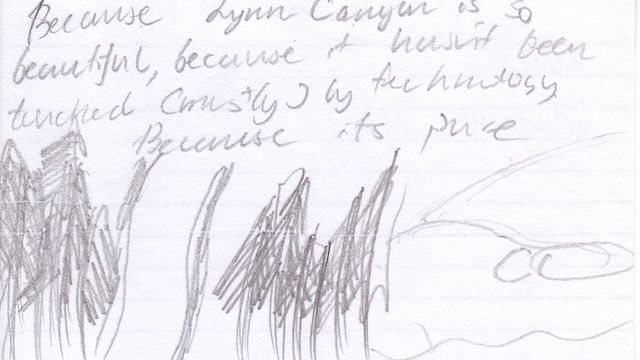 Because Lynn Canyon is so
beautiful, because it hasn't been
touched (mostly) by technology
Because its pure